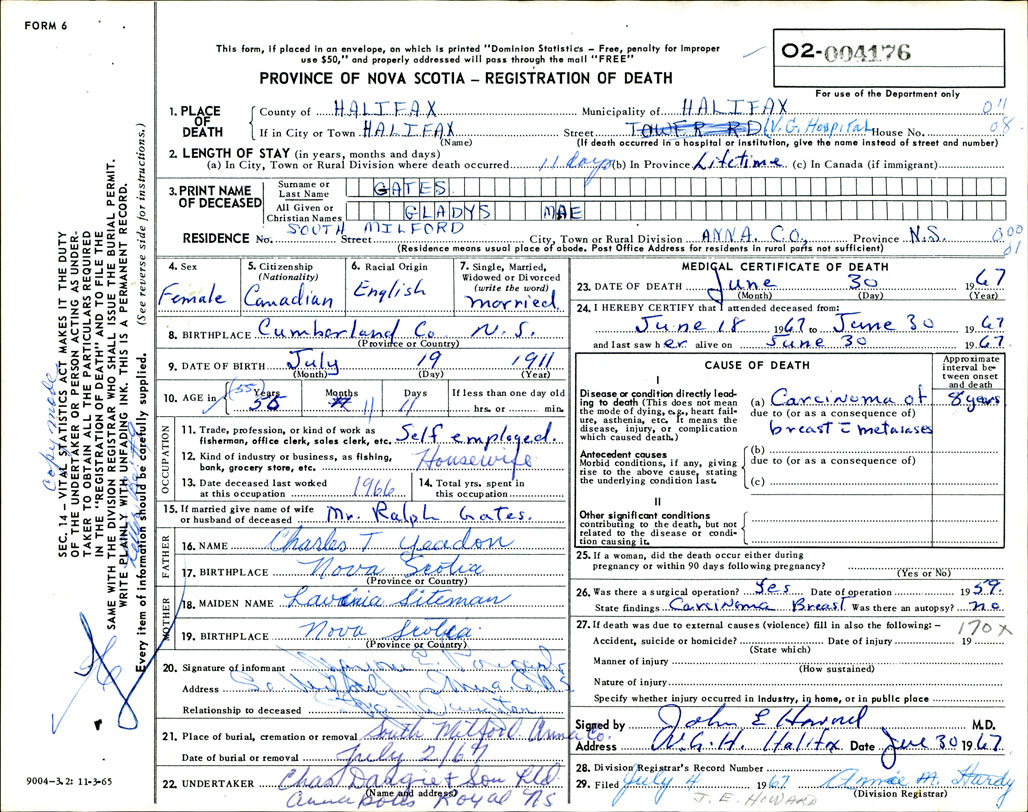 FORM 6
This form, if placed in an envelope, on which is printed "Dominion Statistics – Free, penalty for improper
use $50," and properly addressed will pass through the mail "FREE"
PROVINCE OF NOVA SCOTIA – REGISTRATION OF DEATH
O2-004176
For use of the Department only
1. PLACE OF DEATH
County of HALIFAX Municipality of HALIFAX 011
If in City or Town HALIFAX Street TOWER RD (V.G. Hospital House No. 08
(Name) (If death occurred in a hospital or institution, give the name instead of street and number)
2. LENGTH OF STAY (in years, months and days)
(a) In City, Town or Rural Division where death occurred 11 days (b) In Province Lifetime (c) In Canada (if immigrant)
3. PRINT NAME OF DECEASED
Surname or Last Name GATES
All Given or Christian Names GLADYS MAE
RESIDENCE No. SOUTH MILFORD Street City, Town or Rural Division ANNA. CO., Province N.S. 000
(Residence means usual place of abode. Post Office Address for residents in rural parts not sufficient) 01
4. Sex Female
5. Citizenship (Nationality) Canadian
6. Racial Origin English
7. Single, Married, Widowed or Divorced (write the word) married
8. BIRTHPLACE Cumberland Co N.S.
(Province or Country)
9. DATE OF BIRTH July 19 1911
(Month) (Day) (Year)
10. AGE in Years (55) 56 Months 11 Days 11 If less than one day old
hrs. or min.
OCCUPATION
11. Trade, profession, or kind of work as fisherman, office clerk, sales clerk, etc. Self employed.
12. Kind of industry or business, as fishing, bank, grocery store, etc. Housewife
13. Date deceased last worked at this occupation 1966 14. Total yrs. spent in this occupation
15. If married give name of wife or husband of deceased Mr. Ralph Gates.
FATHER
16. NAME Charles T. Yeadon
17. BIRTHPLACE Nova Scotia
(Province or Country)
MOTHER
18. MAIDEN NAME Lavinia Siteman
19. BIRTHPLACE Nova Scotia
(Province or Country)
20. Signature of informant
Address So Milford, Anna. Co NS
Relationship to deceased
21. Place of burial, cremation or removal South Milford Anna Co.
Date of burial or removal July 2/67
22. UNDERTAKER Chas Dargie & Son Ltd
(Name and address)
Annapolis Royal NS
MEDICAL CERTIFICATE OF DEATH
23. DATE OF DEATH June 30 1967
(Month) (Day) (Year)
24. I HEREBY CERTIFY that I attended deceased from:
June 18 1967 to June 30 1967
and last saw her alive on June 30 1967.
CAUSE OF DEATH
Approximate interval between onset and death
I
Disease or condition directly leading to death (This does not mean the mode of dying, e.g., heart failure, asthenia, etc. It means the disease, injury, or complication which caused death.)
(a) Carcinoma of 8 years
due to (or as a consequence of)
breast c metastases
Antecedent causes
Morbid conditions, if any, giving rise to the above cause, stating the underlying condition last.
(b)
due to (or as a consequence of)
(c)
II
Other significant conditions
contributing to the death, but not related to the disease or condition causing it.
25. If a woman, did the death occur either during pregnancy or within 90 days following pregnancy?
(Yes or No)
26. Was there a surgical operation? Yes Date of operation 1959.
State findings Carcinoma Breast Was there an autopsy? no
27. If death was due to external causes (violence) fill in also the following: – 170X
Accident, suicide or homicide? Date of injury 19
(State which)
Manner of injury
(How sustained)
Nature of injury
Specify whether injury occurred in Industry, in home, or in public place
Signed by John E Howard M.D.
Address V.G.H. Halifax Date June 30 1967
28. Division Registrar's Record Number
29. Filed July 4 1967 Annie M. Hardy
J. E. HOWARD (Division Registrar)
SEC. 14 – VITAL STATISTICS ACT MAKES IT THE DUTY
OF THE UNDERTAKER OR PERSON ACTING AS UNDER-
TAKER TO OBTAIN ALL THE PARTICULARS REQUIRED
IN THE "REGISTRATION OF DEATH" AND TO FILE THE
SAME WITH THE DIVISION REGISTRAR WHO SHALL ISSUE THE BURIAL PERMIT.
WRITE PLAINLY WITH UNFADING INK. THIS IS A PERMANENT RECORD.
Every item of information should be carefully supplied. (See reverse side for instructions.)
Copy made
9004-3.2: 11-3-65